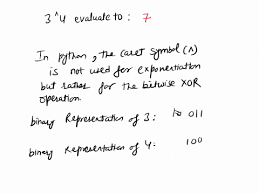 3^4 evaluate to : 7
In python, the caret symbol (^)
is not used for exponentiation
but rather for the bitwise XOR
operation.
binary Representation of 3: 011
binary Representation of 4: 100